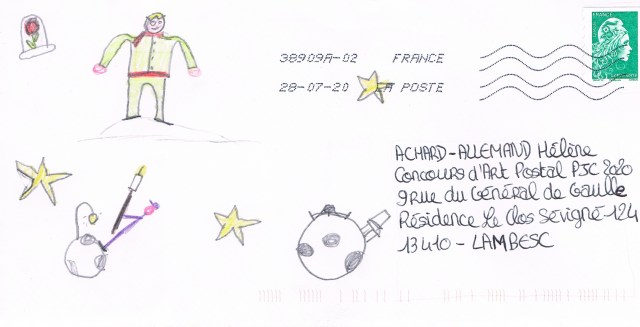 38909A-02 FRANCE
28-07-20 LA POSTE
FRANCE
ACHARD-ALLEMAND Hélène
Concours d'Art Postal PJC 2020
9 rue du Général de Gaulle
Résidence Le Clos Sévigné-124
13410-LAMBESC